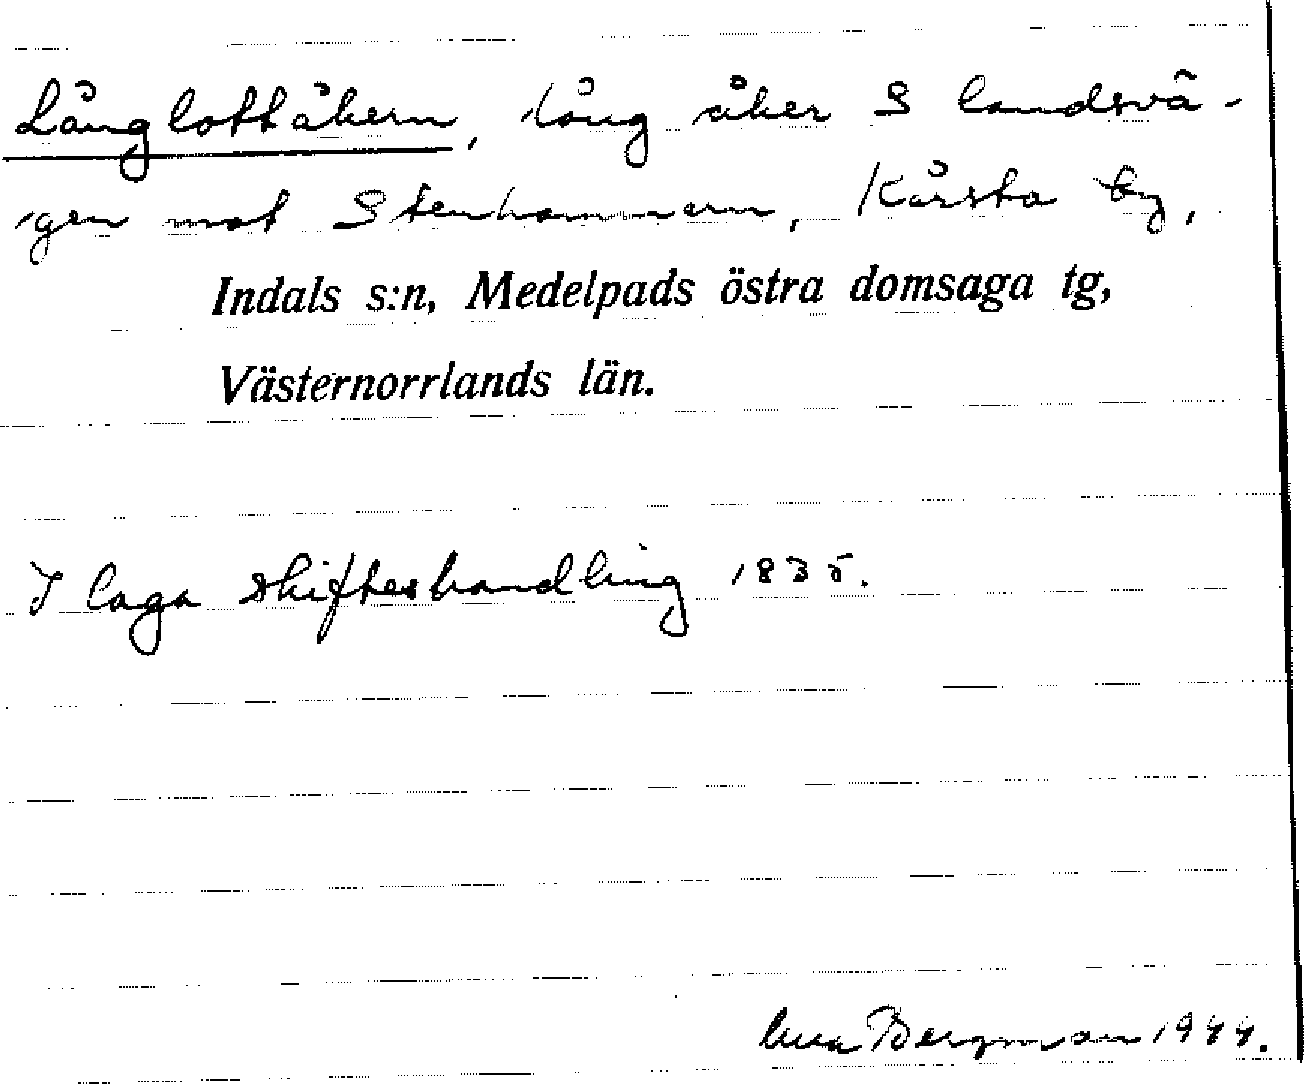 Långlottåkern, lång åker S landsvä-
gen mot Stenhammaren, Kårsta by,
Indals s:n, Medelpads östra domsaga tg,
Västernorrlands län.
I laga skifteshandling 1835.
Bergman 1944.